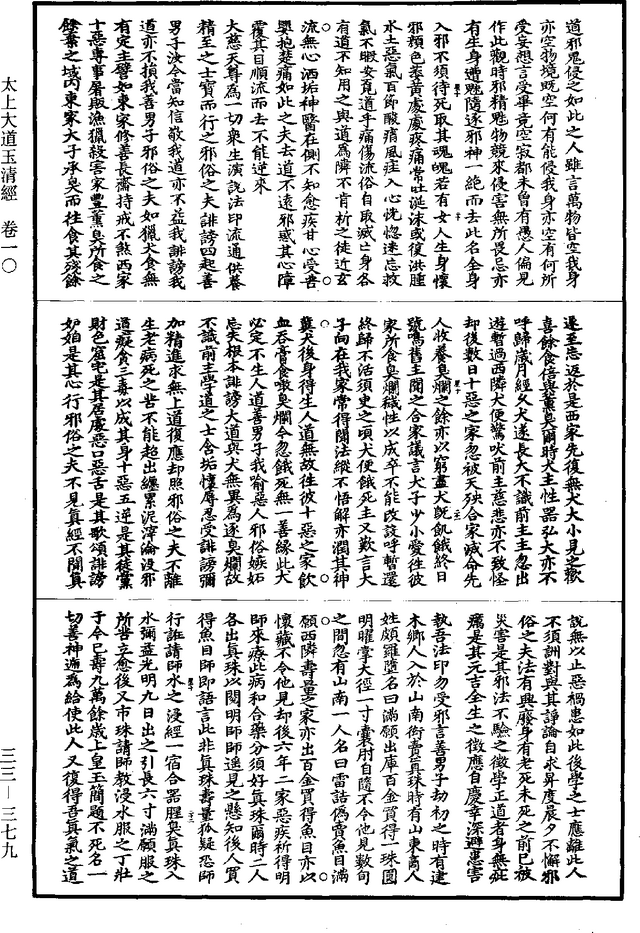 太上大道玉清經 卷一〇
三三—三七九
道邪鬼侵之如此之人雖言萬物皆空我身
亦空物境既空何有能侵我身亦空有何所
受妄想言受畢竟空寂都未曾有愚人偏見
作此觀時邪精魅物競來侵害無所畏忌亦
有生身遭魅隨逐邪神一絕而去此名全身
入邪不須待死取其魂魄若有女人生身懷
邪顏色萎黃處處疼痛常吐涎沫或復洪腫
水土惡氣百節酸痟風疰入心恍惚迷忘救
氣不暇安覓道乎痛傷流俗自取滅亡身各
有道不知用之與道爲隣不肯析之徒近玄
流無心洒垢神醫在側不知愈疾甘心受毒
嬰抱楚痛如此之夫去道不遠邪惑其心障
覆其目順流而去不能逆來
大慈天尊爲一切衆生演說法印流通供養
精至之士寶而行之邪俗之夫誹謗四起善
男子汝今當知信敬我道亦不益我誹謗我
道亦不損我善男子邪俗之夫如獵犬食無
有定主譬如東家修善長齋持戒不煞西家
十惡專事屠販漁獵殺害家豐薰臭所食之
餘棄之域內東家犬子承臭而往食其殘餘
遂至忘返於是西家先復無犬犬小見之歡
喜餘食倍與薰臭爾時犬主性器弘大亦不
呼歸歲月經久犬遂長大不識前主主忽出
遊暫過西隣犬便驚吠前主慈悲亦不致怪
却後數日十惡之家忽被天殃合家滅命先
人收養臭爛之餘亦以窮盡犬旣飢餓終日
號鳴舊主聞之合家議言犬子少小愛往彼
家所食臭爛穢性以成卒不能改設呼暫還
終歸不活須臾之頃犬便餓死主又歎言犬
子向在我家常得聞法縱不悟解亦潤其神
糞犬後身得生人道無故往彼十惡之家飲
血吞膏食噉臭爛今忽餓死無一善緣此犬
必定不生人道善男子我喻惡人邪俗嫉妬
忘失根本誹謗大道與犬無異爲逐臭爛故
不識前主學道之士含垢懷辱忍受誹謗彌
加精進求無上道復應却照邪俗之夫不離
生老病死之苦不能超出纏累泥滓淪沒邪
道癡貪三毒以成其身十惡五逆是其徒黨
財色窟宅是其居處惡口惡舌是其歌頌誹謗
妒妲是其心行邪俗之夫不見真經不聞真
說無以止惡禍患如此後學之士應離此人
不須詶對與其諍論自求昇度晨夕不懈邪
俗之夫法有興廢身有老死未死之前已被
災害是其邪法不驗之徵學正道者身無疵
癘是其元吉全生之徵應自慶幸深避患害
執吾法印勿受邪言善男子劫初之時有建
木鄉人入於山南衒賣真珠時有山東商人
姓頗羅墮名曰滿願出庫百金買得一珠圓
明曜掌大徑一寸囊肘自隨不令他見數旬
之間忽有山南一人名曰雷詁偽賣魚目滿
願西隣壽量之家亦出百金買得魚目亦以
懷藏不令他見却後六年二家惡疾祈得明
師來療此病和合藥分須好真珠爾時二人
各出真珠以閱明師師遙見之懸知後人買
得魚目師即語言此非真珠壽量狐疑恐師
行誑請師水之浸經一宿合器腥臭真珠入
水彌益光明九日出之引長六寸滿願服之
所苦立愈後又市珠請師教浸水服之丁壯
于今已壽九萬餘歲上皇玉簡題不死名一
切善神遍爲給使此人又復得吾真氣之道